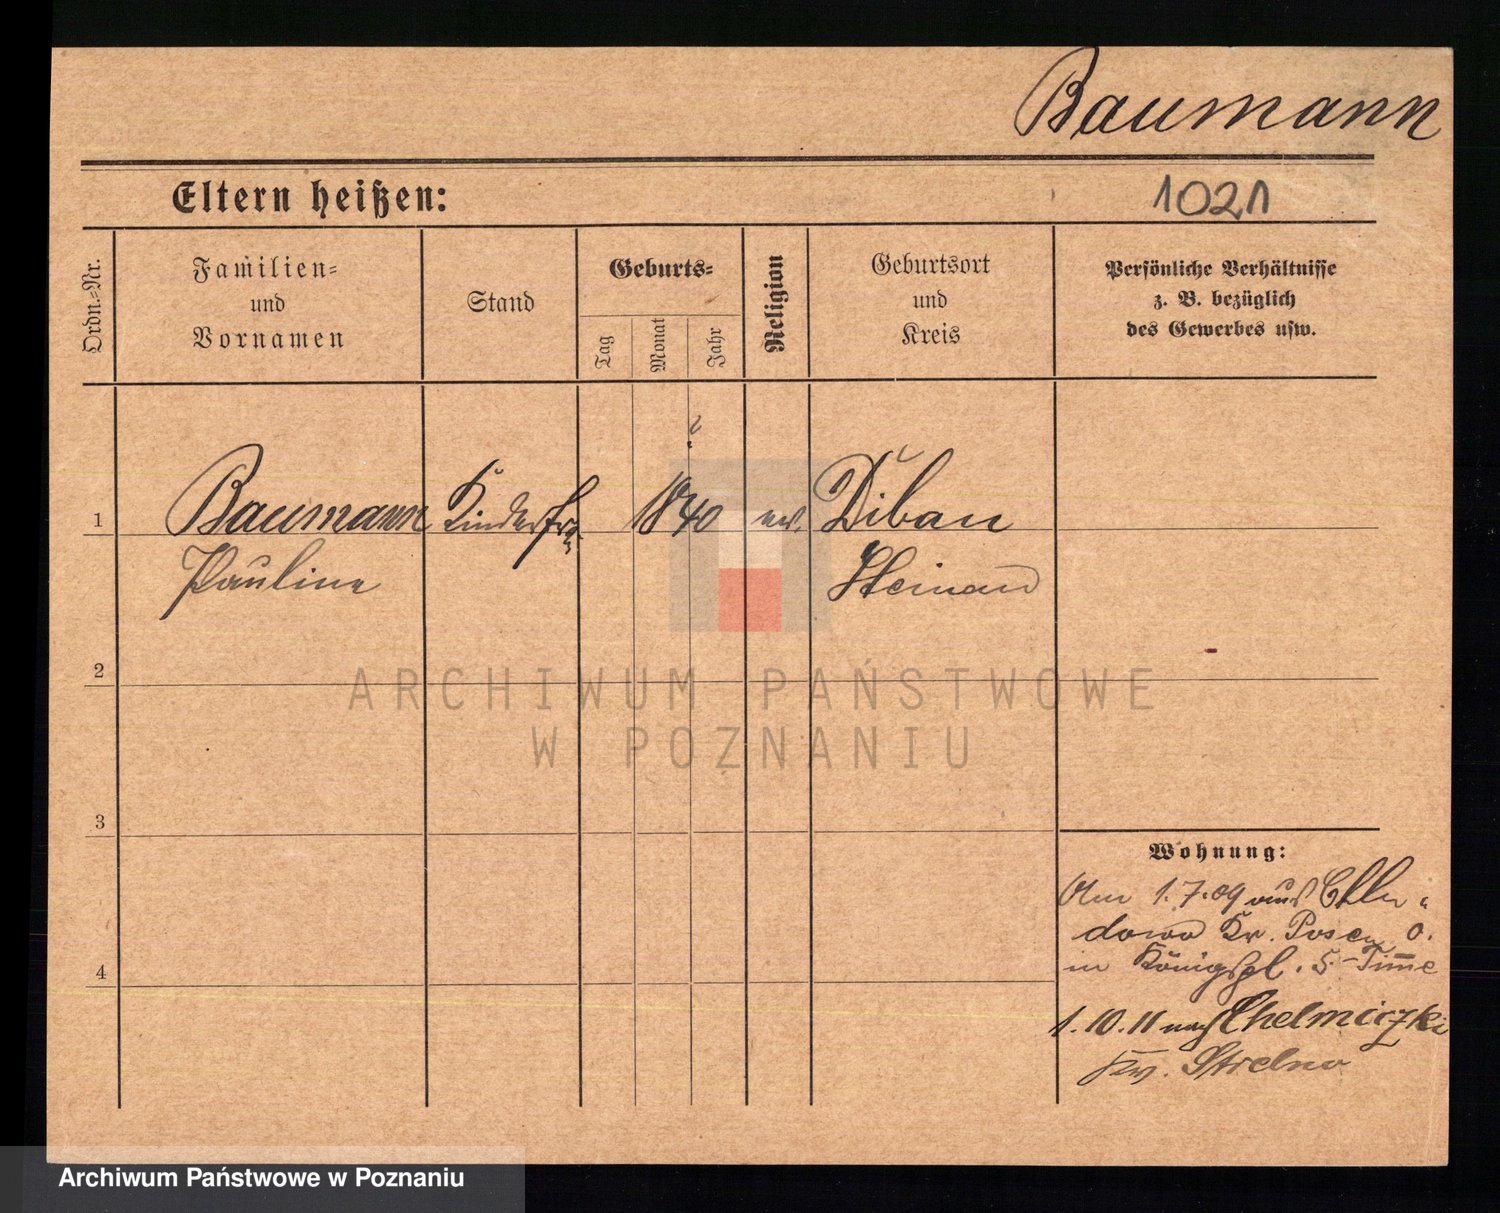 Baumann
Eltern heißen:
1021
Ordn.=Nr.
Familien=
und
Vornamen
Stand
Geburts=
Tag
Monat
Jahr
Religion
Geburtsort
und
Kreis
Persönliche Verhältnisse
z. B. bezüglich
des Gewerbes usw.
?
1 Baumann Kinderfr. 1840 ev. Diban
Pauline Steinau
2
3
4
Wohnung:
Am 1.7.09 aus
dowo Kr. Posen O.
in Königspl. 5
1.10.11 nach Chelmiczki
Kr. Strelno
ARCHIWUM PAŃSTWOWE
W POZNANIU
Archiwum Państwowe w Poznaniu